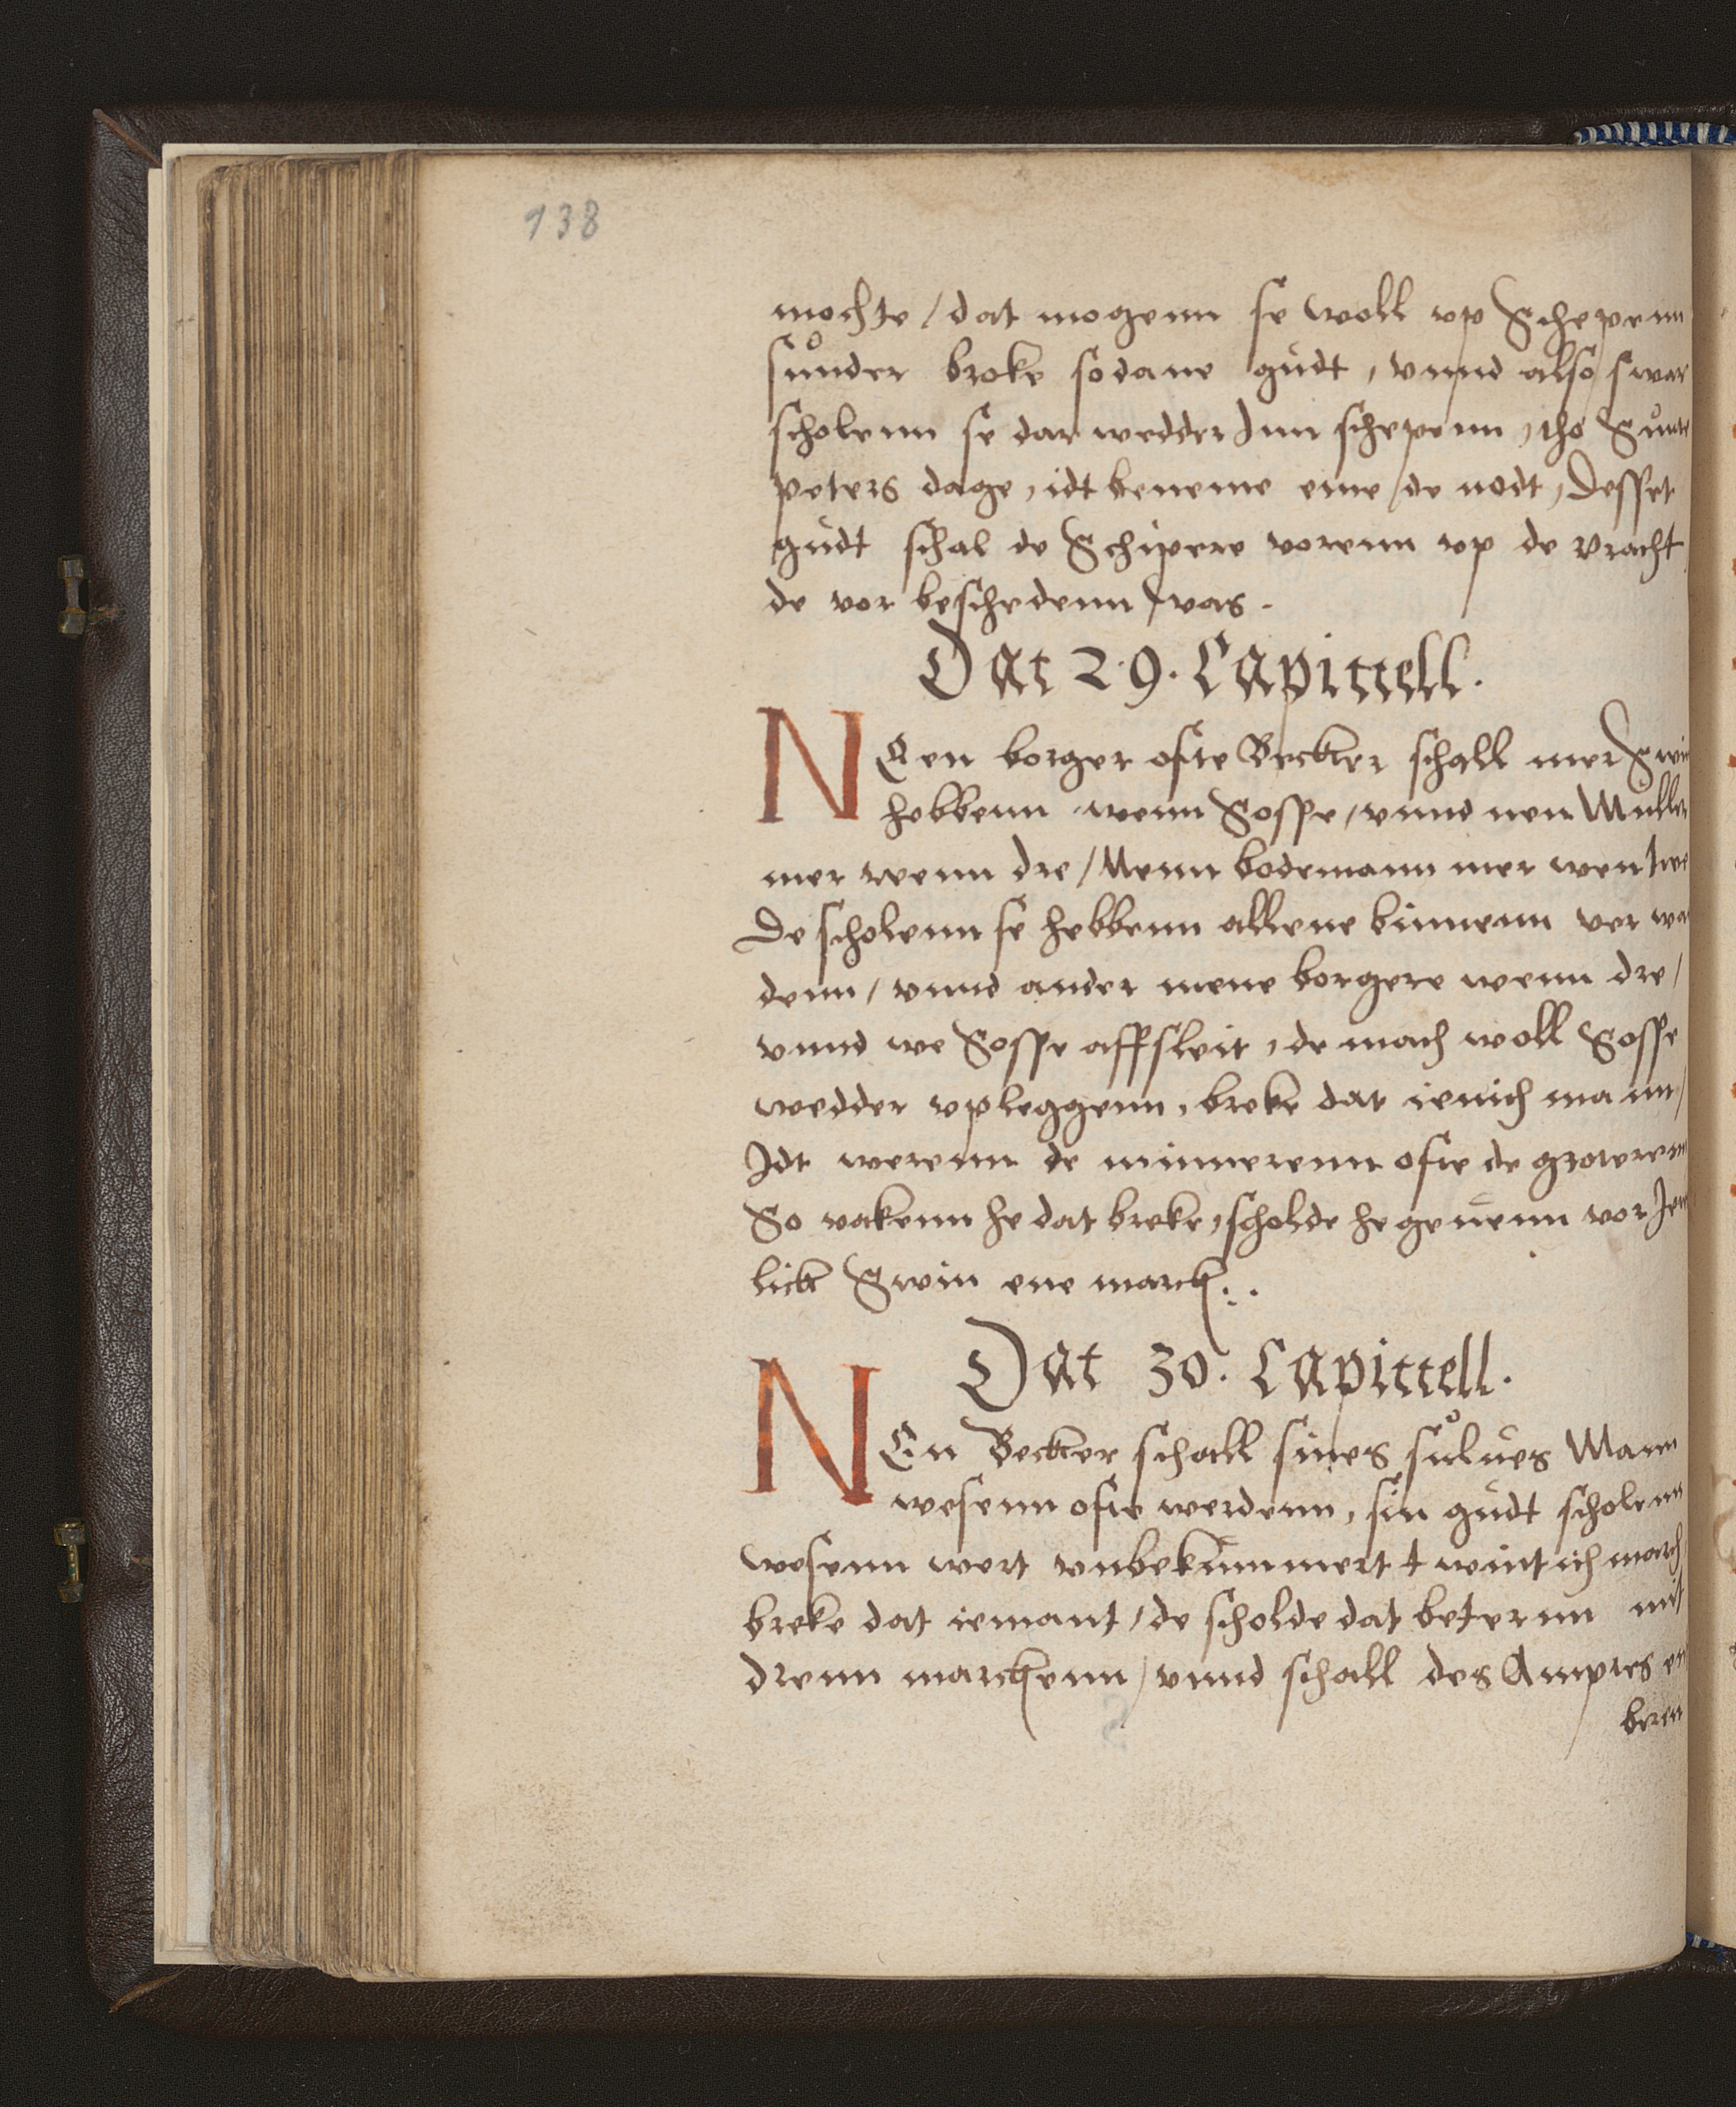 138
mochte / dat mogenn se woll vp Schepenn
sůnder broke sodane gudt, vnnd also swar
scholenn se dar wedder Inn schepenn, tho Sůnte
peters dage, idt beneme eme de nodt, Desset
gudt schal de Schipere vorenn vp de vracht
de vor beschedenn was.
Dat 29. Capittell.
NEen borger ofte Becker schall mer Swin
hebbenn wenn Sosse / vnnd nen Muller
mer wenn dre / Nenn bodemann mer wen twe
De scholenn se hebbenn allene binnenn ver wa
denn / vnnd ander mene borgere wenn dre /
vnnd we Sosse affsleit, de mach woll Sosse
wedder vpleggenn, breke dat ienich mann /
Idt werenn de minnerenn ofte de groterenn
So vakenn he dat breke, scholde he geuenn vor Jew
lick Swin ene marck...
Dat 30. Capittell.
NEn Becker schall sines sůlues Mann
wesenn ofte werdenn, sin gudt scholenn
wesenn wert vnbekummert twintich march
breke dat iemant / de scholde dat beterenn mit
drenn marckenn / vnnd schall des Amptes en
beren